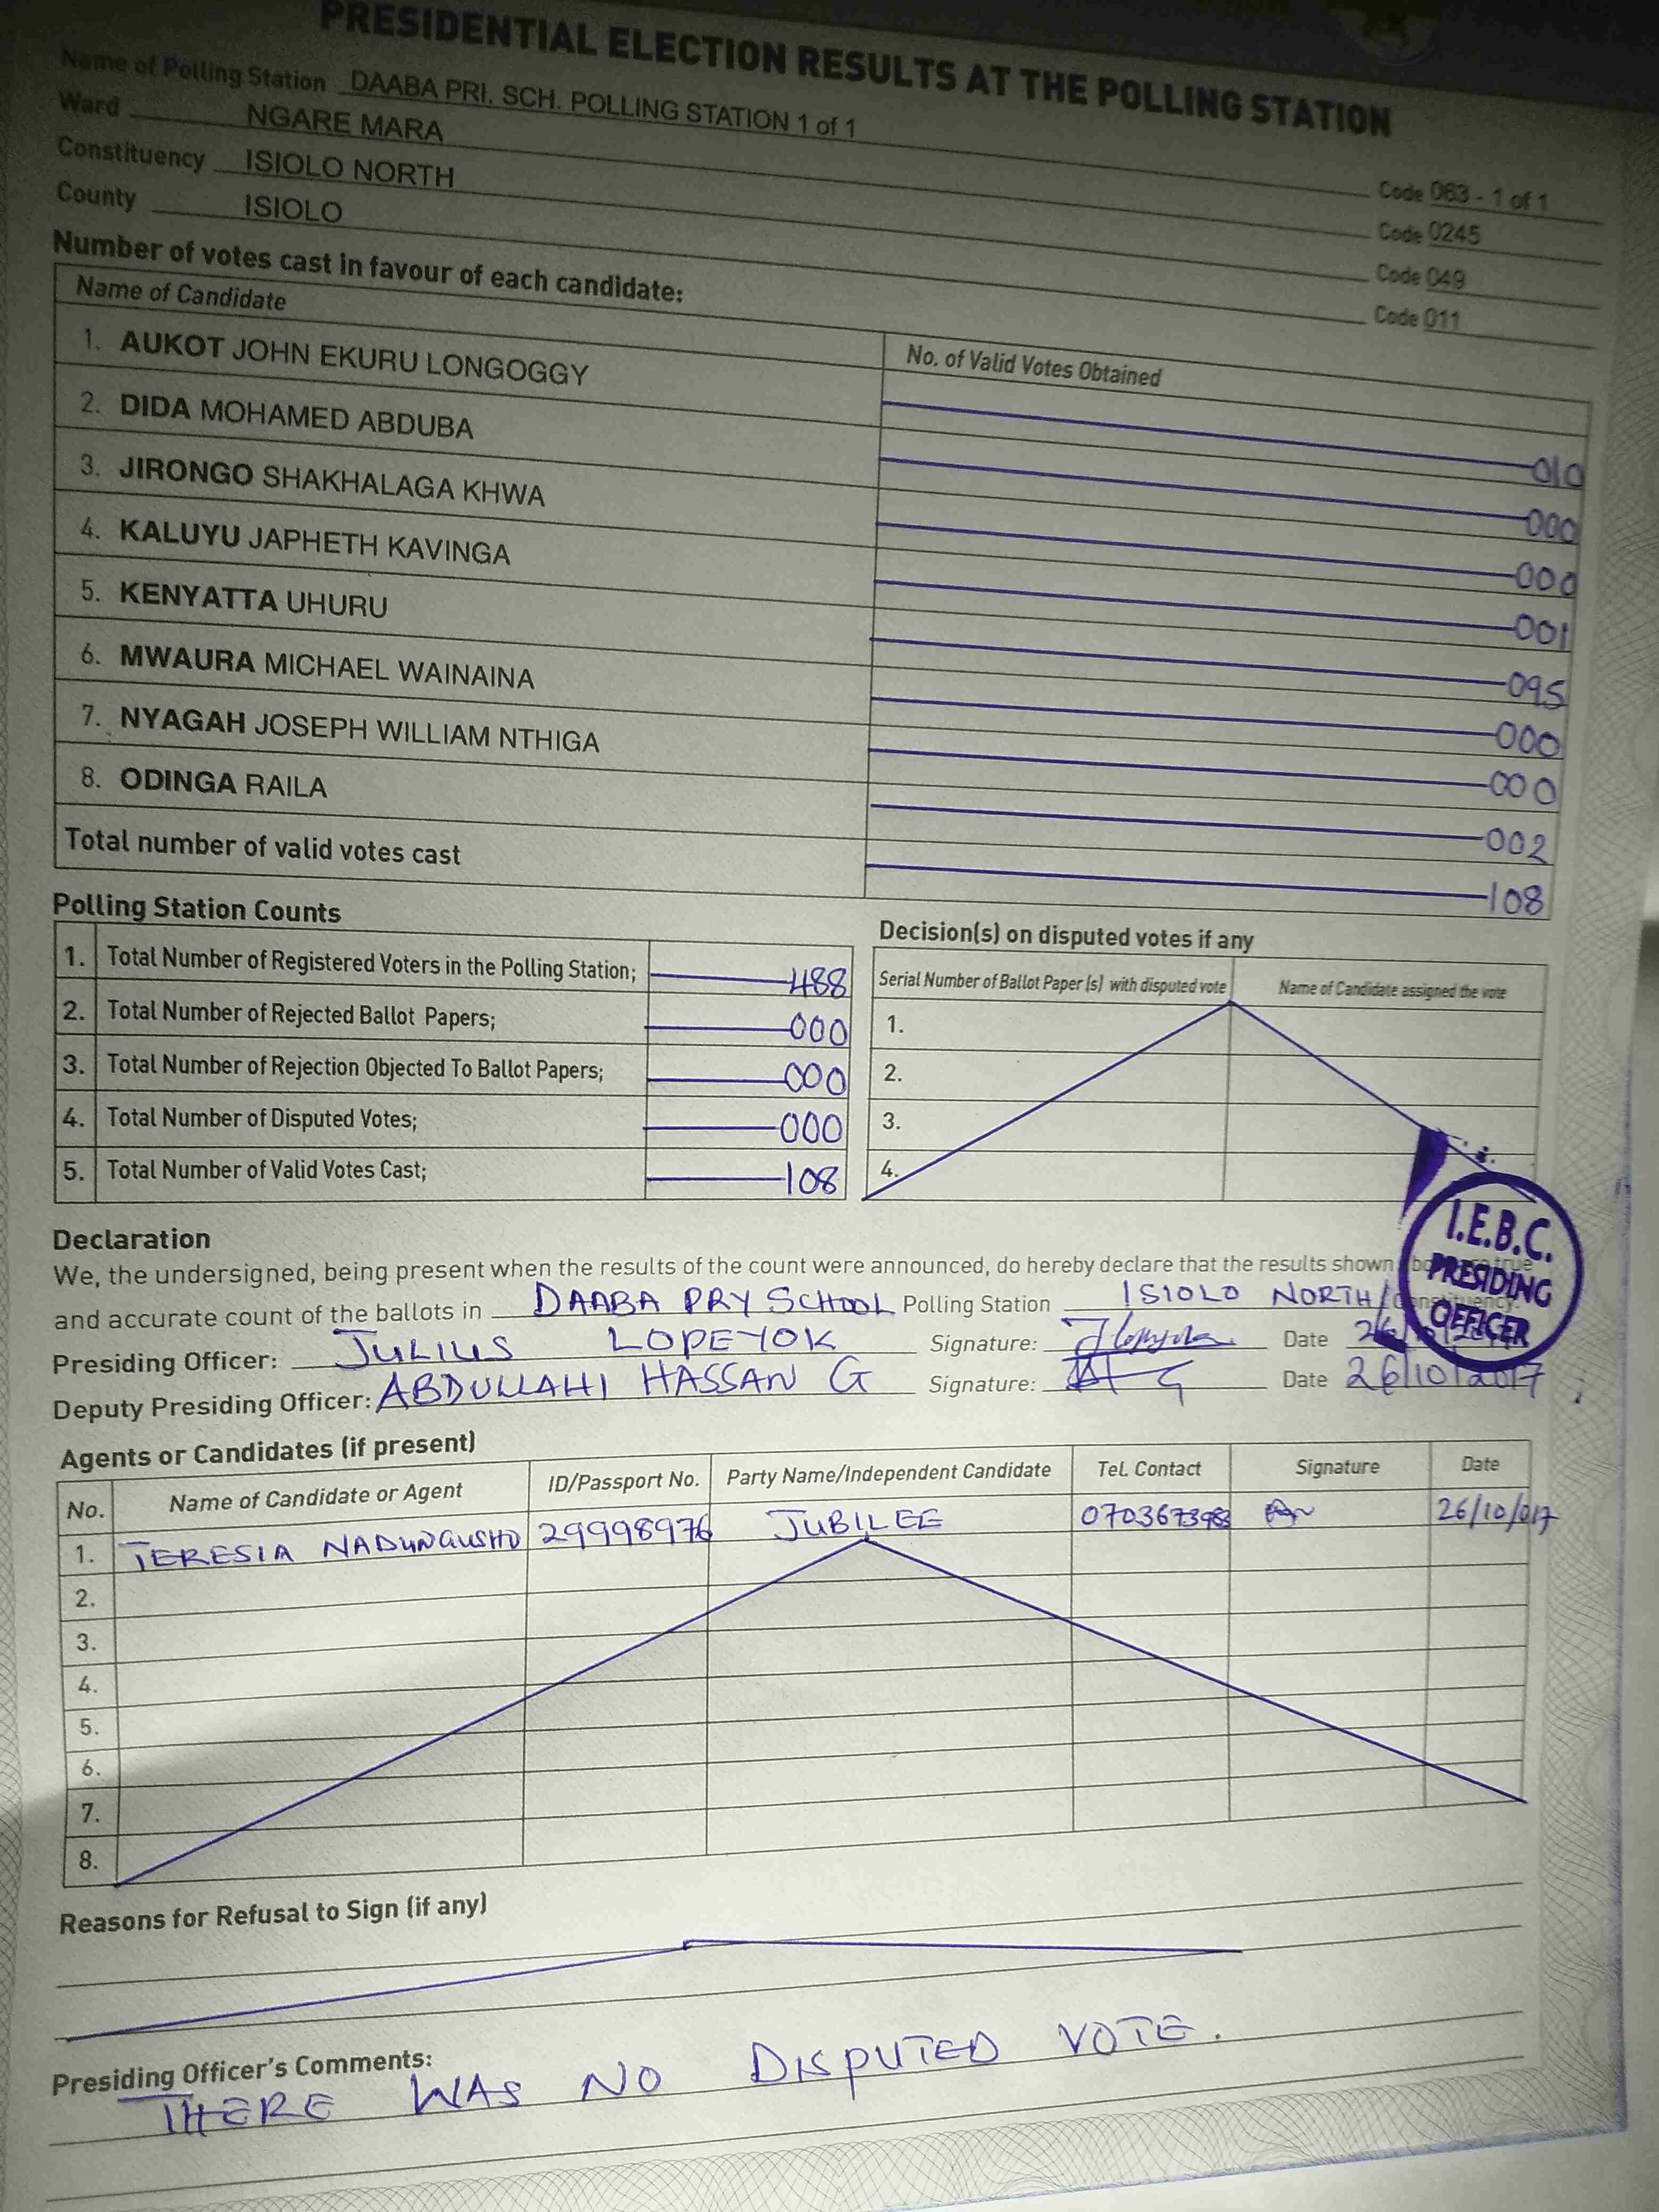 PRESIDENTIAL ELECTION RESULTS AT THE POLLING STATION
Name of Polling Station DAABA PRI. SCH. POLLING STATION 1 of 1 Code 063 - 1 of 1
Ward NGARE MARA Code 0245
Constituency ISIOLO NORTH Code 049
County ISIOLO Code 011
Number of votes cast in favour of each candidate:
Name of Candidate No. of Valid Votes Obtained
1. AUKOT JOHN EKURU LONGOGGY 010
2. DIDA MOHAMED ABDUBA 000
3. JIRONGO SHAKHALAGA KHWA 000
4. KALUYU JAPHETH KAVINGA 001
5. KENYATTA UHURU 095
6. MWAURA MICHAEL WAINAINA 000
7. NYAGAH JOSEPH WILLIAM NTHIGA 000
8. ODINGA RAILA 002
Total number of valid votes cast 108
Polling Station Counts
1. Total Number of Registered Voters in the Polling Station; 488
2. Total Number of Rejected Ballot Papers; 000
3. Total Number of Rejection Objected To Ballot Papers; 000
4. Total Number of Disputed Votes; 000
5. Total Number of Valid Votes Cast; 108
Decision(s) on disputed votes if any
Serial Number of Ballot Paper (s) with disputed vote Name of Candidate assigned the vote
1.
2.
3.
4.
I.E.B.C.
PRESIDING
OFFICER
Declaration
We, the undersigned, being present when the results of the count were announced, do hereby declare that the results shown true
and accurate count of the ballots in DAABA PRY SCHOOL Polling Station ISIOLO NORTH Constituency.
Presiding Officer: JULIUS LOPEYOK Signature: Date
Deputy Presiding Officer: ABDULLAHI HASSAN G Signature: Date 26/10/2017
Agents or Candidates (if present)
No. Name of Candidate or Agent ID/Passport No. Party Name/Independent Candidate Tel. Contact Signature Date
1. TERESIA 29998976 JUBILEE 26/10/017
2.
3.
4.
5.
6.
7.
8.
Reasons for Refusal to Sign (if any)
Presiding Officer's Comments:
THERE WAS NO DISPUTED VOTE.